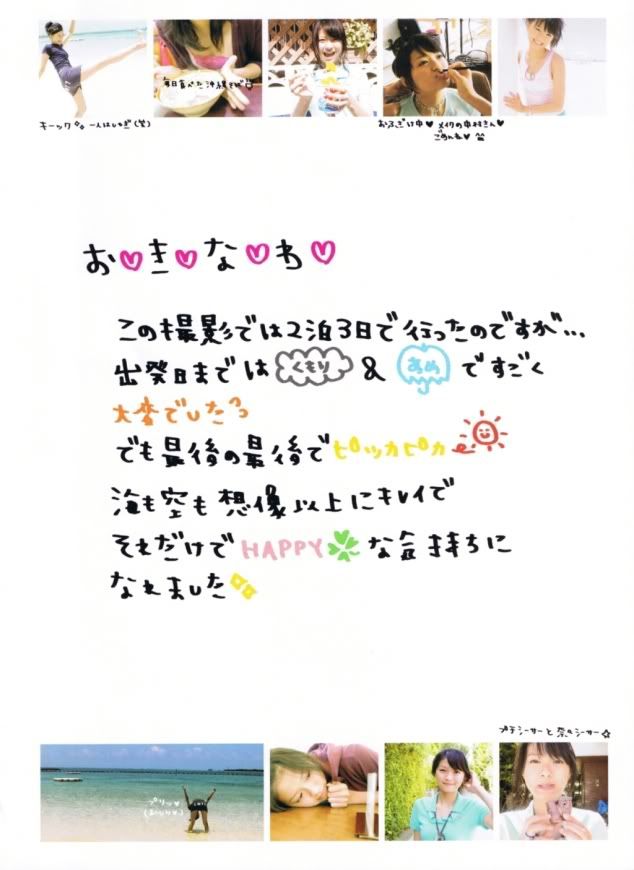 毎日食べた沖縄そば
キーック 一人はしゃぎ(笑)
おふざけ中♥ メイクの中村さん♥
ごめんね♥
お♥き♥な♥わ♥
この撮影では2泊3日で行ったのですが...
出発日までは くもり & あめ ですごく
大変でした
でも最後の最後でピッカピカ
海も空も想像以上にキレイで
それだけで HAPPY な気持ちに
なれました
プチシーサーと奈々シーサー☆
プリッ♥